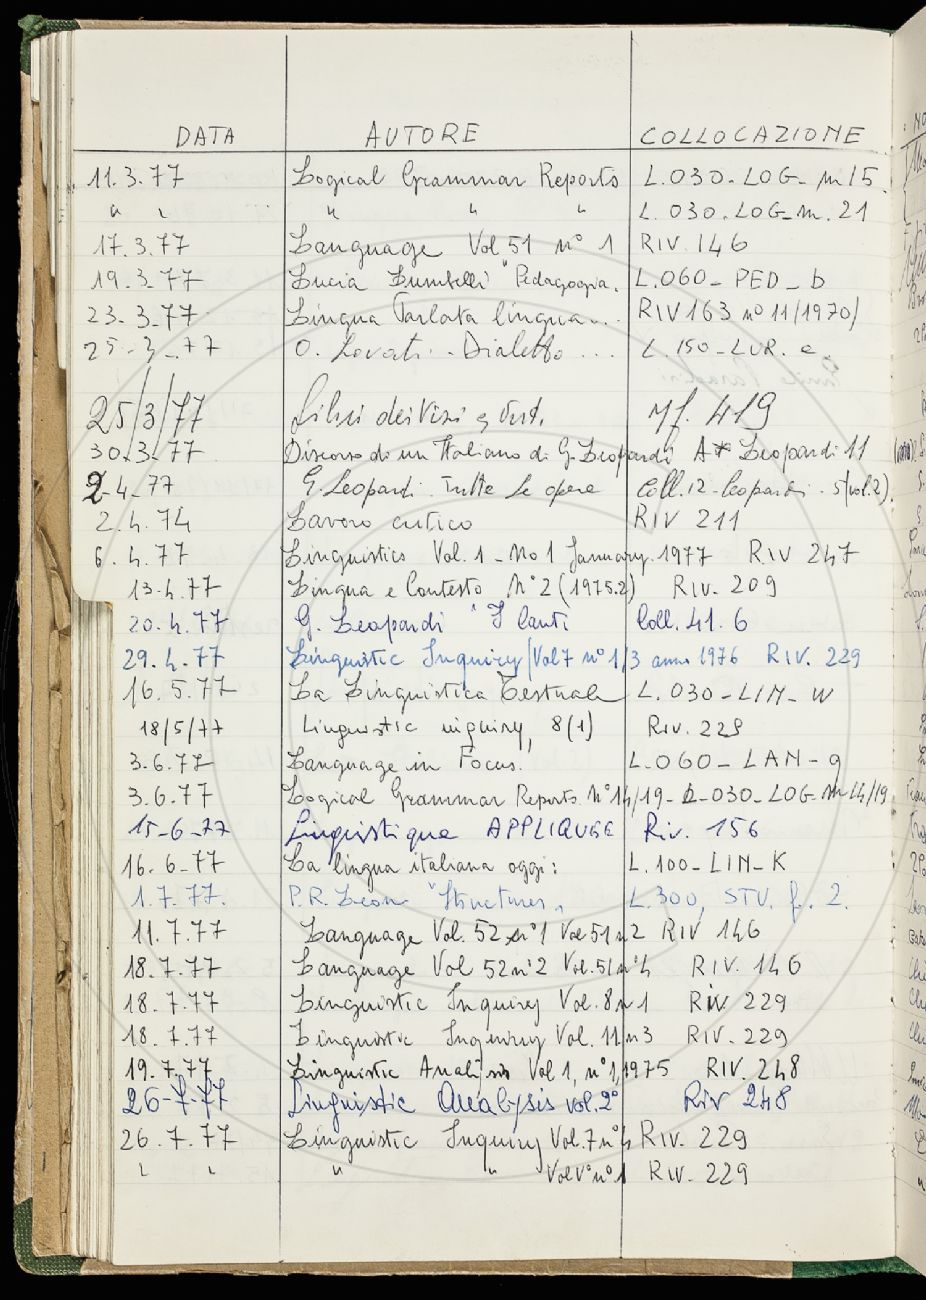 DATA AUTORE COLLOCAZIONE
11.3.77 Logical Grammar Reports L.030-LOG-m 15
" " " " " L.030.LOG-m.21
17.3.77 Language Vol 51 n° 1 RIV. 146
19.3.77 Lucia Lumbelli "Pedagogia. L.060-PED-b
23.3.77 Lingua Parlata lingua... RIV 163 n° 11/1970/
25-3-77 O. Lovati. Dialetto ... L.150-LUR. e
25/3/77 dei Vizi e Virt. Mf. 419
30.3.77 Discorso di un Italiano di G. Leopardi A* Leopardi 11
2-4-77 G. Leopardi Tutte le opere Coll.12-Leopardi-5(vol.2).
2.4.74 Lavoro critico RIV 211
6.4.77 Linguistics Vol.1-No 1 January.1977 RIV 247
13.4.77 Lingua e Contesto N°2 (1975.2) RIV. 209
20.4.77 G. Leopardi "I Canti Coll.41.6
29.4.77 Linguistic Inquiry/Vol 7 n° 1/3 anno 1976 RIV. 229
16.5.77 La Linguistica Testuale L.030-LIN-w
18/5/77 Linguistic inquiry, 8(1) Riv. 229
3.6.77 Language in Focus. L.060-LAN-g
3.6.77 Logical Grammar Reports N°14/19-L-030-LOG m 14/19
15-6-77 Linguistique APPLIQUEE Riv. 156
16.6.77 La lingua italiana oggi: L.100-LIN-K
1.7.77. P.R. Leon "Structures" L.300, STU. f. 2.
11.7.77 Language Vol. 52 n°1 Vol 51 n 2 RIV 146
18.7.77 Language Vol 52 n°2 Vol.51 n°4 RIV. 146
18.7.77 Linguistic Inquiry Vol. 8 n 1 RIV. 229
18.7.77 Linguistic Inquiry Vol. 11 n 3 RIV. 229
19.7.77 Linguistic Analisis Vol 1, n°1, 1975 RIV. 248
26-7-77 Linguistic Analysis vol. 2° Riv 248
26.7.77 Linguistic Inquiry Vol. 7 n°4 RIV. 229
" " " " Vol V° n° 1 RIV. 229